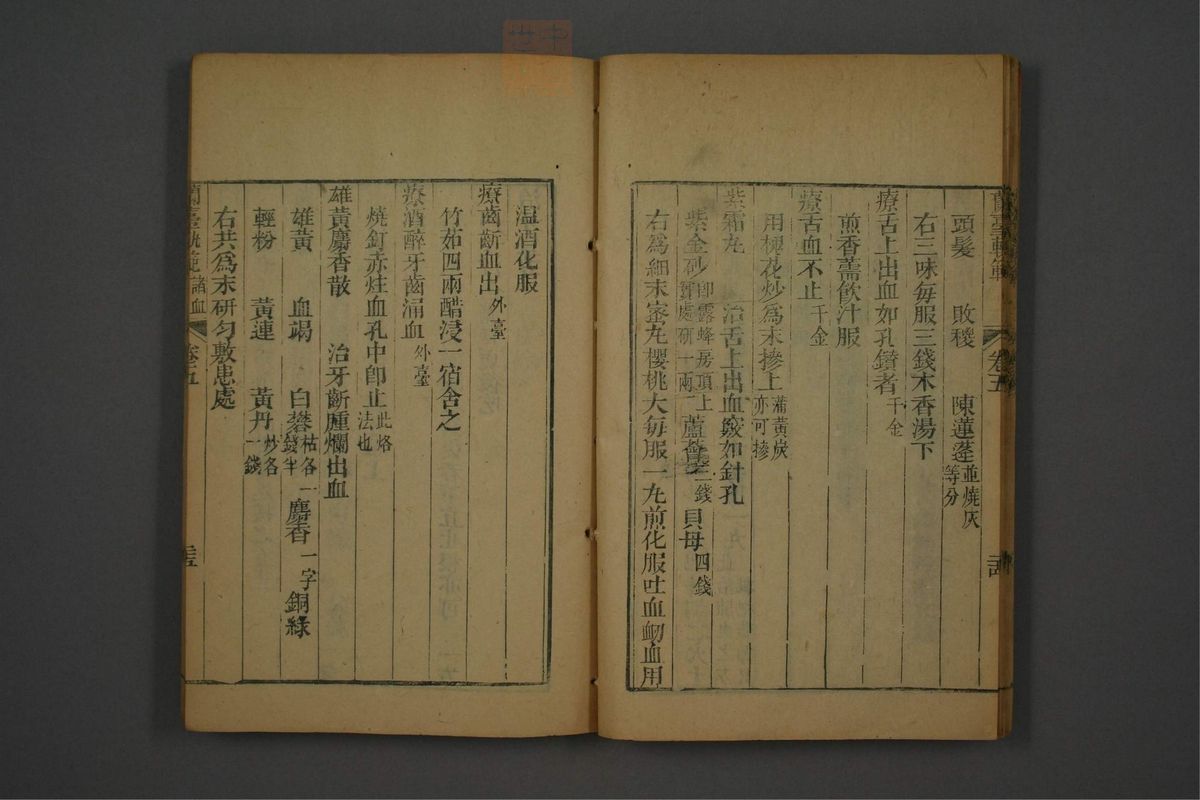 蘭臺軌範
卷五
頭髮 敗稷 陳蓮蓬並燒灰等分
右三味每服三錢木香湯下
療舌上出血如孔鑽者千金
煎香薷飲汁服
療舌血不止千金
用槐花炒為末摻上蒲黃炭亦可摻
紫霜丸 治舌上出血竅如針孔
紫金砂卽露蜂房頂上實處研一兩 蘆薈三錢 貝母四錢
右為細末蜜丸櫻桃大每服一丸煎化服吐血衂血用
温酒化服
療齒齗血出外臺
竹茹四兩醋浸一宿含之
療酒醉牙齒涌血外臺
燒釘赤炷血孔中卽止此烙法也
雄黃麝香散 治牙齗腫爛出血
雄黃 血竭 白礬枯各一錢半 麝香一字 銅綠
輕粉 黃連 黃丹炒各一錢
右共為末研勻敷患處
蘭臺軌範 諸血
卷五